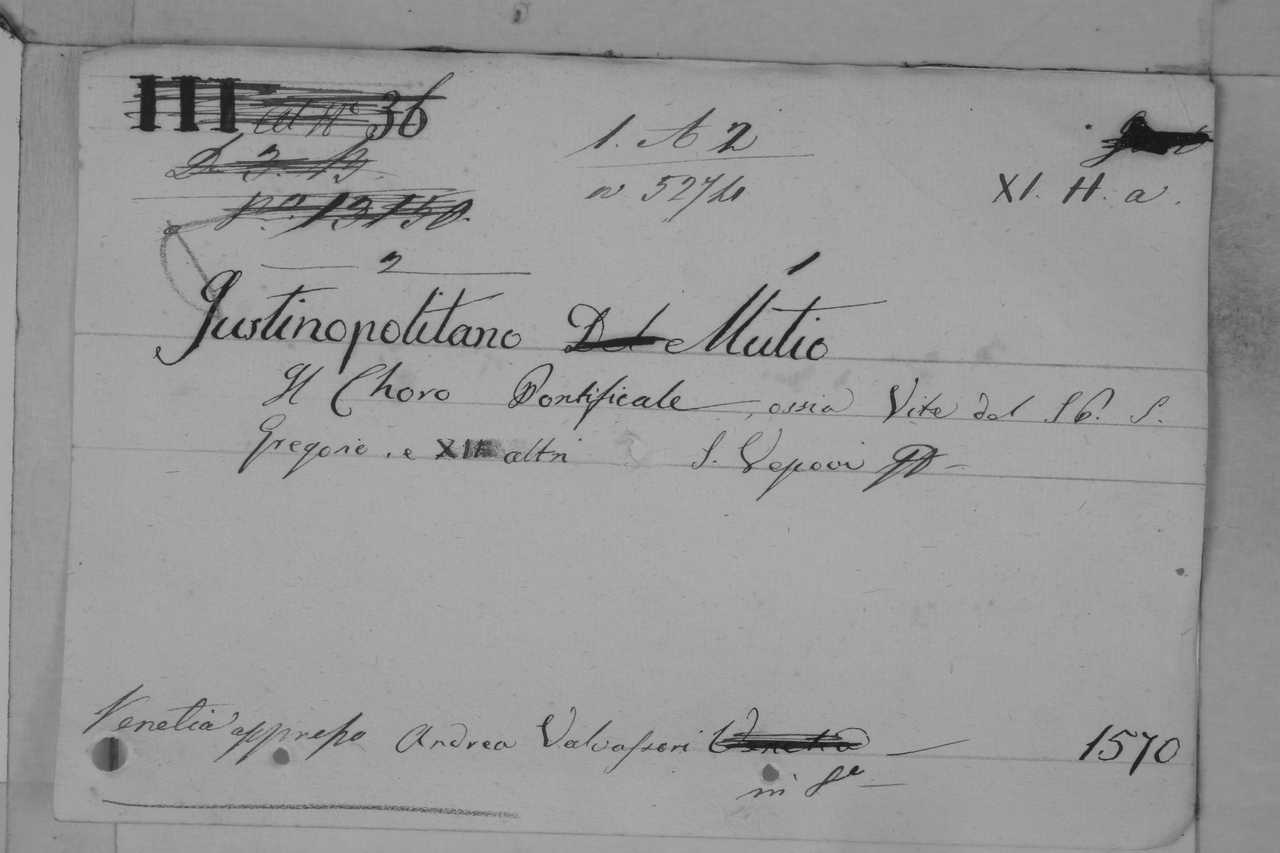 III Cat N° 36
D. 3. B.
N° 13150.
1. A 2
n 5274
XI. H. a.
2 1
Justinopolitano Del Mutio
Il Choro Pontificale, ossia Vite del SP. S.
Gregorio, e XII altri S. Vescovi
Venetia appresso Andrea Valvassori Venetia 1570
in 8°